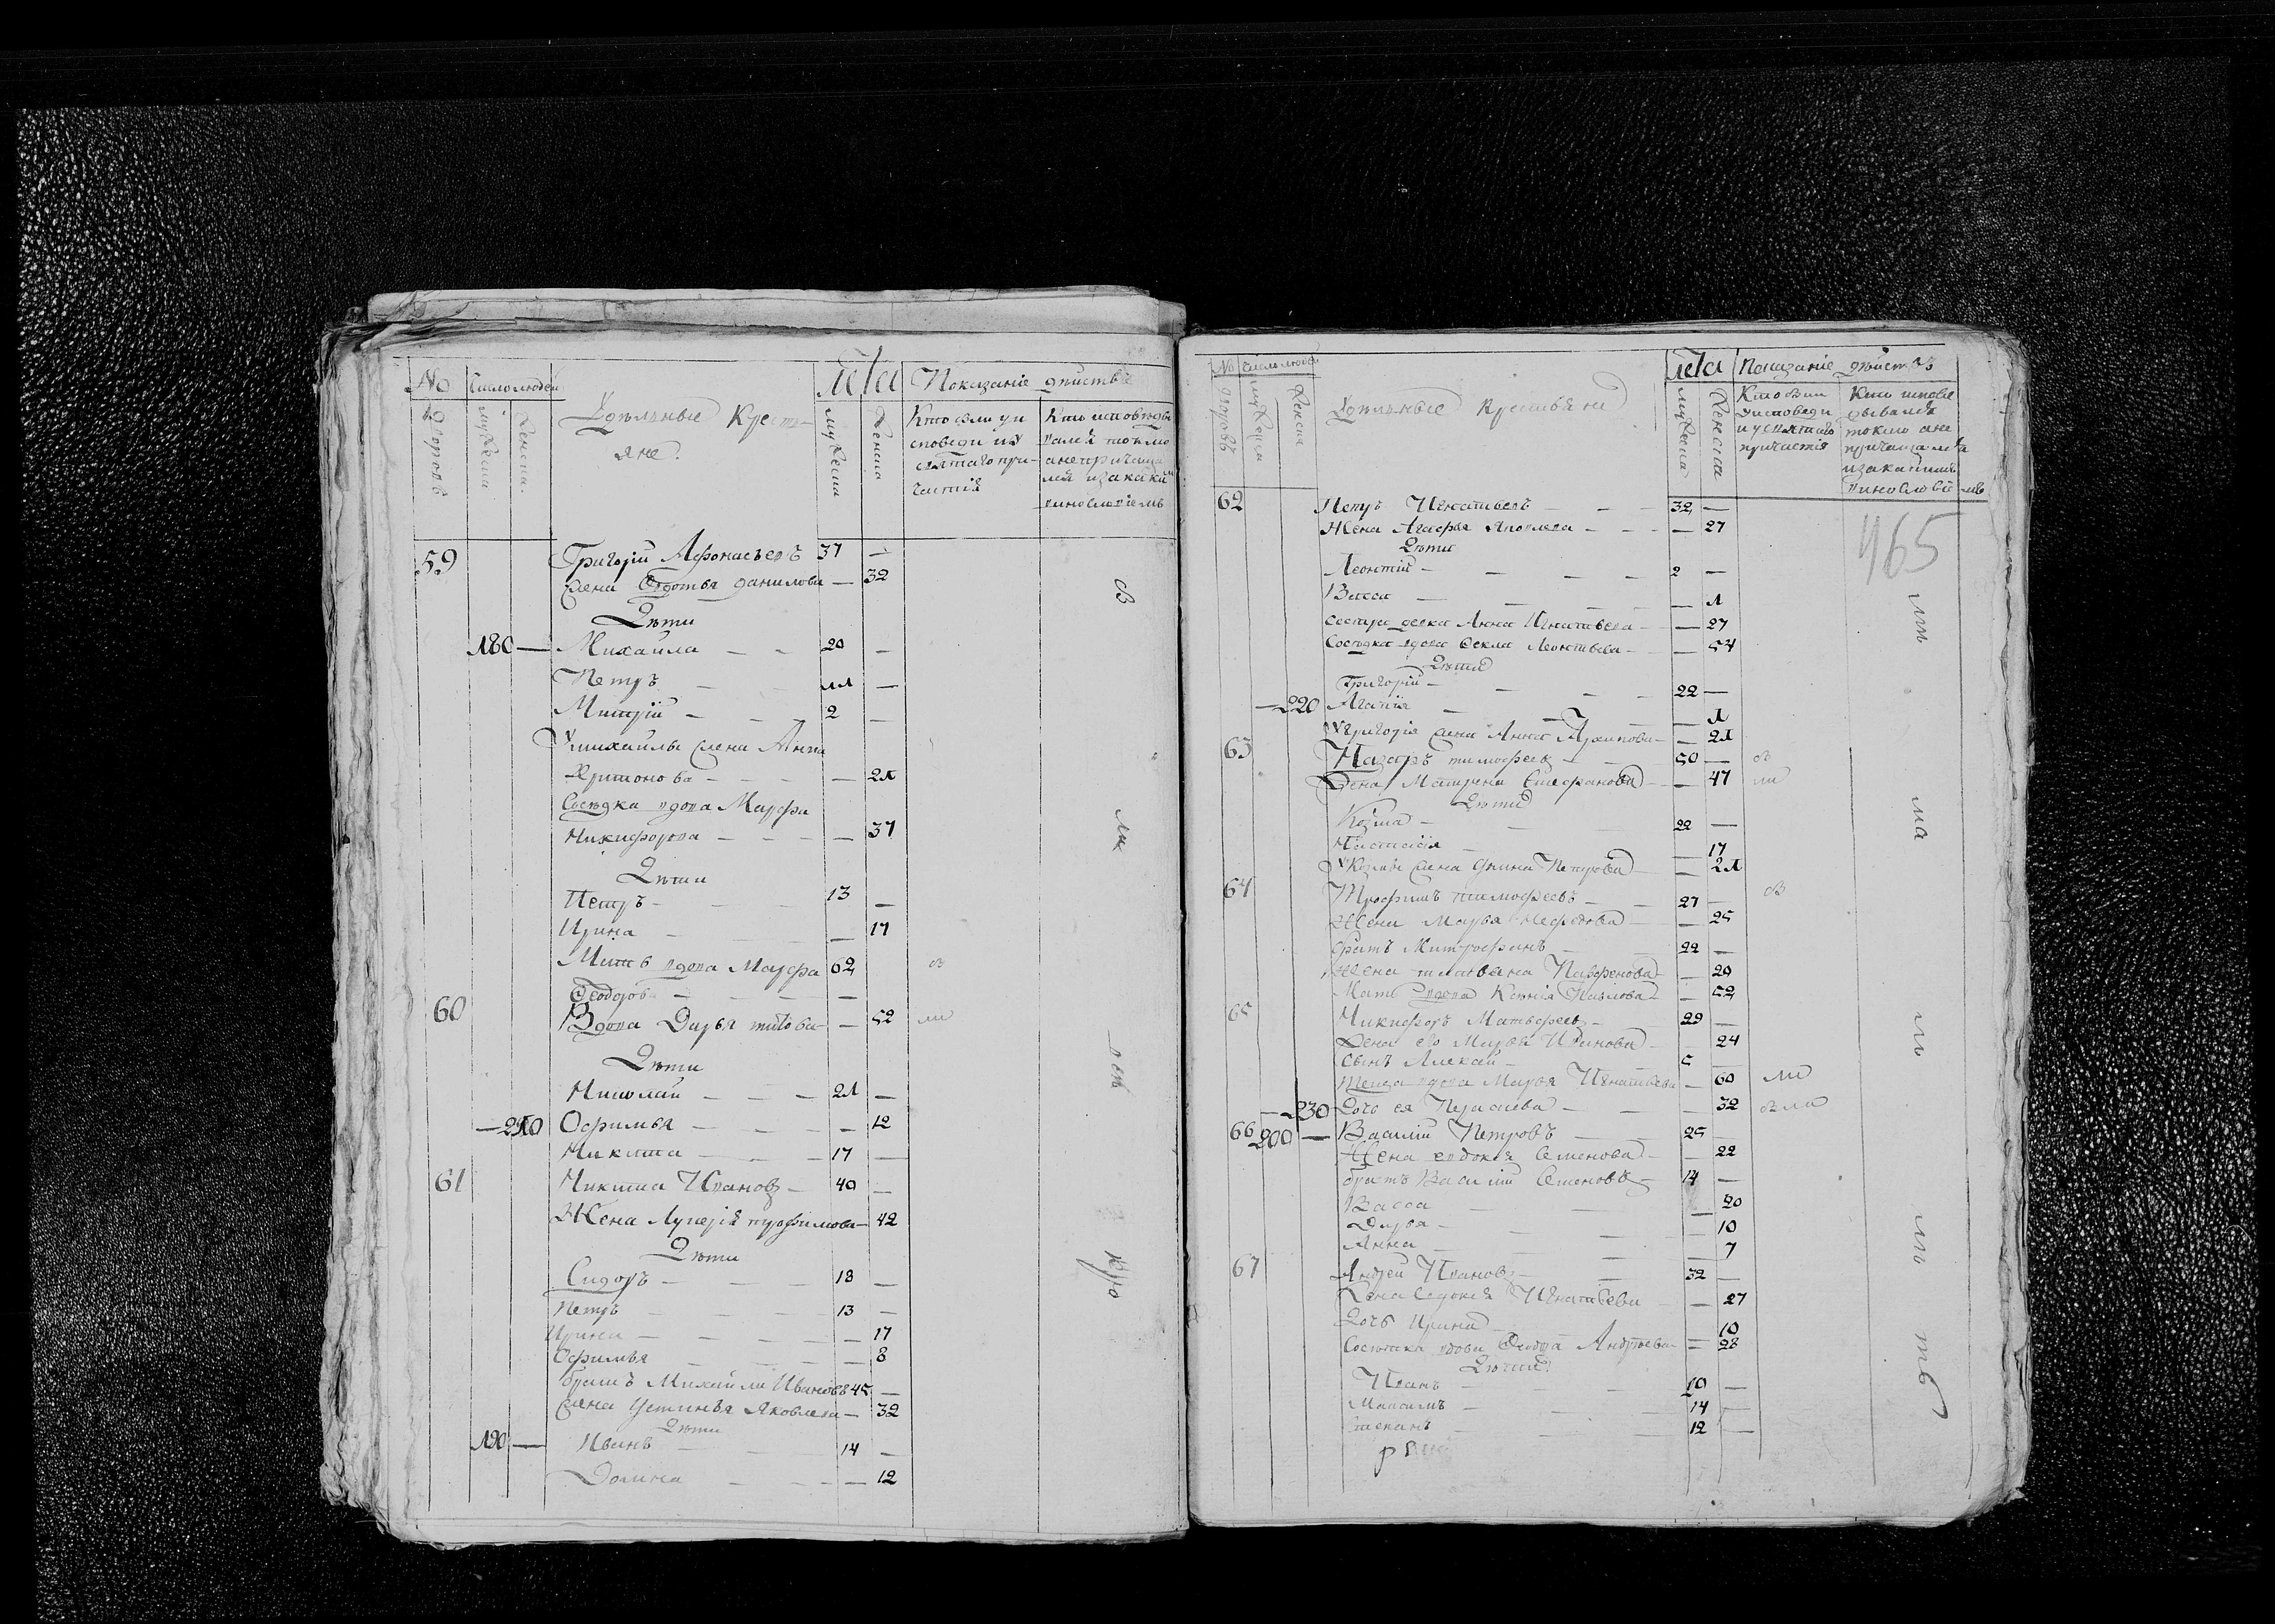 No Число людей Лета Показаніе действъ
дворовъ мужеска женска. Удѣльные Кресть-
яне.
мужеска женска
Кто были у и
споведи и у
святаго при-
частія
Кто исповѣды
вался токмо
а не причаща
лся и за каким
винословіемъ
59 Григорій Афонасьевъ 37 —
жена Евдотья данилова — 32
Дѣти
180 — Михайла — — 20 —
Петръ — — 11 —
Митрій — — — 2 —
У михайлы жена Анна
Артонова — — — — 21
Сосѣдка вдова Марфа
Никифорова — — — — 37
Дѣти
Петръ — — — 13 —
Ирина — — — 17
Мать вдова Марфа 62
Феодорова — — — —
60 Вдова Дарья титова — 52
Дѣти
Николай — — — 21 —
— 210 Офимья — — — — 12
Никита — — — 17 —
61 Никита Ивановъ — 40 —
Жена Лукерія трофимова — 42
Дѣти
Сидоръ — — — 18 —
Петръ — — 13 —
Ирина — — — — 17
Офимья — — — 8
братъ Михайла Ивановъ 45 —
жена Устинья Яковлева — 32
Дѣти
190 — Иванъ — — 14 —
Домна — — — — 12
No Число людей Лета Показаніе дѣйствъ
дворовъ мужеска женска Удѣльные крестьяне
мужеска женска
Кто были
у исповеди
и у святаго
причастія
Кто испове
дывался
токмо а не
причащался
и за каким
винословіемъ
465
62 Петръ Игнатьевъ — — — 32 —
Жена Агафья Яковлева — — — — 27
Дѣти
Леонтій — — — — 2 —
Васса — — — — — 1
Сестра девка Анна Игнатьева — — 27
Сосѣдка вдова Фекла Леонтьева — — 54
Дѣти
Григорій — — — — 22 —
— 220 Агапія — — — 1
У григорія жена Анна Архипова — — 21
63 Назаръ тимофеевъ — — 50 —
Жена Матрена Стефанова — — 47
Дѣти
Козма — — 22 —
Настасія — — 17
У Козмы жена Ирина Петрова — — 21
64 Трофимъ тимофеевъ — — 27 —
Жена Марья Нефедова — — 25
братъ Митрофанъ — — 22 —
Жена татьяна Парфенова — — 20
Мать вдова Ксенія Павлова — — 52
65 Никифоръ Матвфеевъ — 29 —
Жена ево Марья Иванова — 24
сынъ Алексай — 5
теща вдова Марья Игнатьева — 60
— 230 Дочь ея Парасковья — — — 32
66 200 — Василій Петровъ — — 25 —
Жена евдокія Семенова — — 22
братъ Василій Семеновъ — 14 —
Васса — — — 20
Дарья — — — — 10
Анна — — — 7
67 Андрей Ивановъ — — 32 —
Жена Евдокія Игнатьева — — 27
Дочь Ирина — 10
Сосѣтка вдова Федора Андреева — — 28
Дѣти
Иванъ — — 10 —
Максимъ — — 14 —
Степанъ — — 12 —